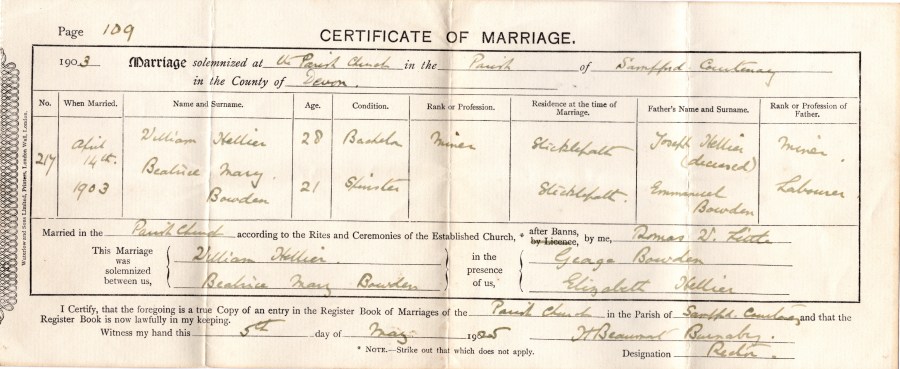 Page 109
CERTIFICATE OF MARRIAGE.
1903 Marriage solemnized at the Parish Church in the Parish of Sampford Courtenay
in the County of Devon.
No. When Married. Name and Surname. Age. Condition. Rank or Profession. Residence at the time of Marriage. Father's Name and Surname. Rank or Profession of Father.
217 April 14th. 1903 William Hellier 28 Bachelor Miner Sticklepath Joseph Hellier (deceased) Miner.
Beatrice Mary Bowden 21 Spinster Sticklepath. Emmanuel Bowden Labourer
Married in the Parish Church according to the Rites and Ceremonies of the Established Church, * after Banns, by Licence, by me, Thomas W. Little
This Marriage was solemnized between us, William Hellier. Beatrice Mary Bowden in the presence of us, George Bowden Elizabeth Hellier
I Certify, that the foregoing is a true Copy of an entry in the Register Book of Marriages of the Parish Church in the Parish of Sampfd. Courtenay and that the
Register Book is now lawfully in my keeping.
Witness my hand this 5th day of May 1925 H Beaumont Burnaby.
* NOTE.—Strike out that which does not apply. Designation Rector.
Waterlow and Sons Limited, Printers, London Wall, London.